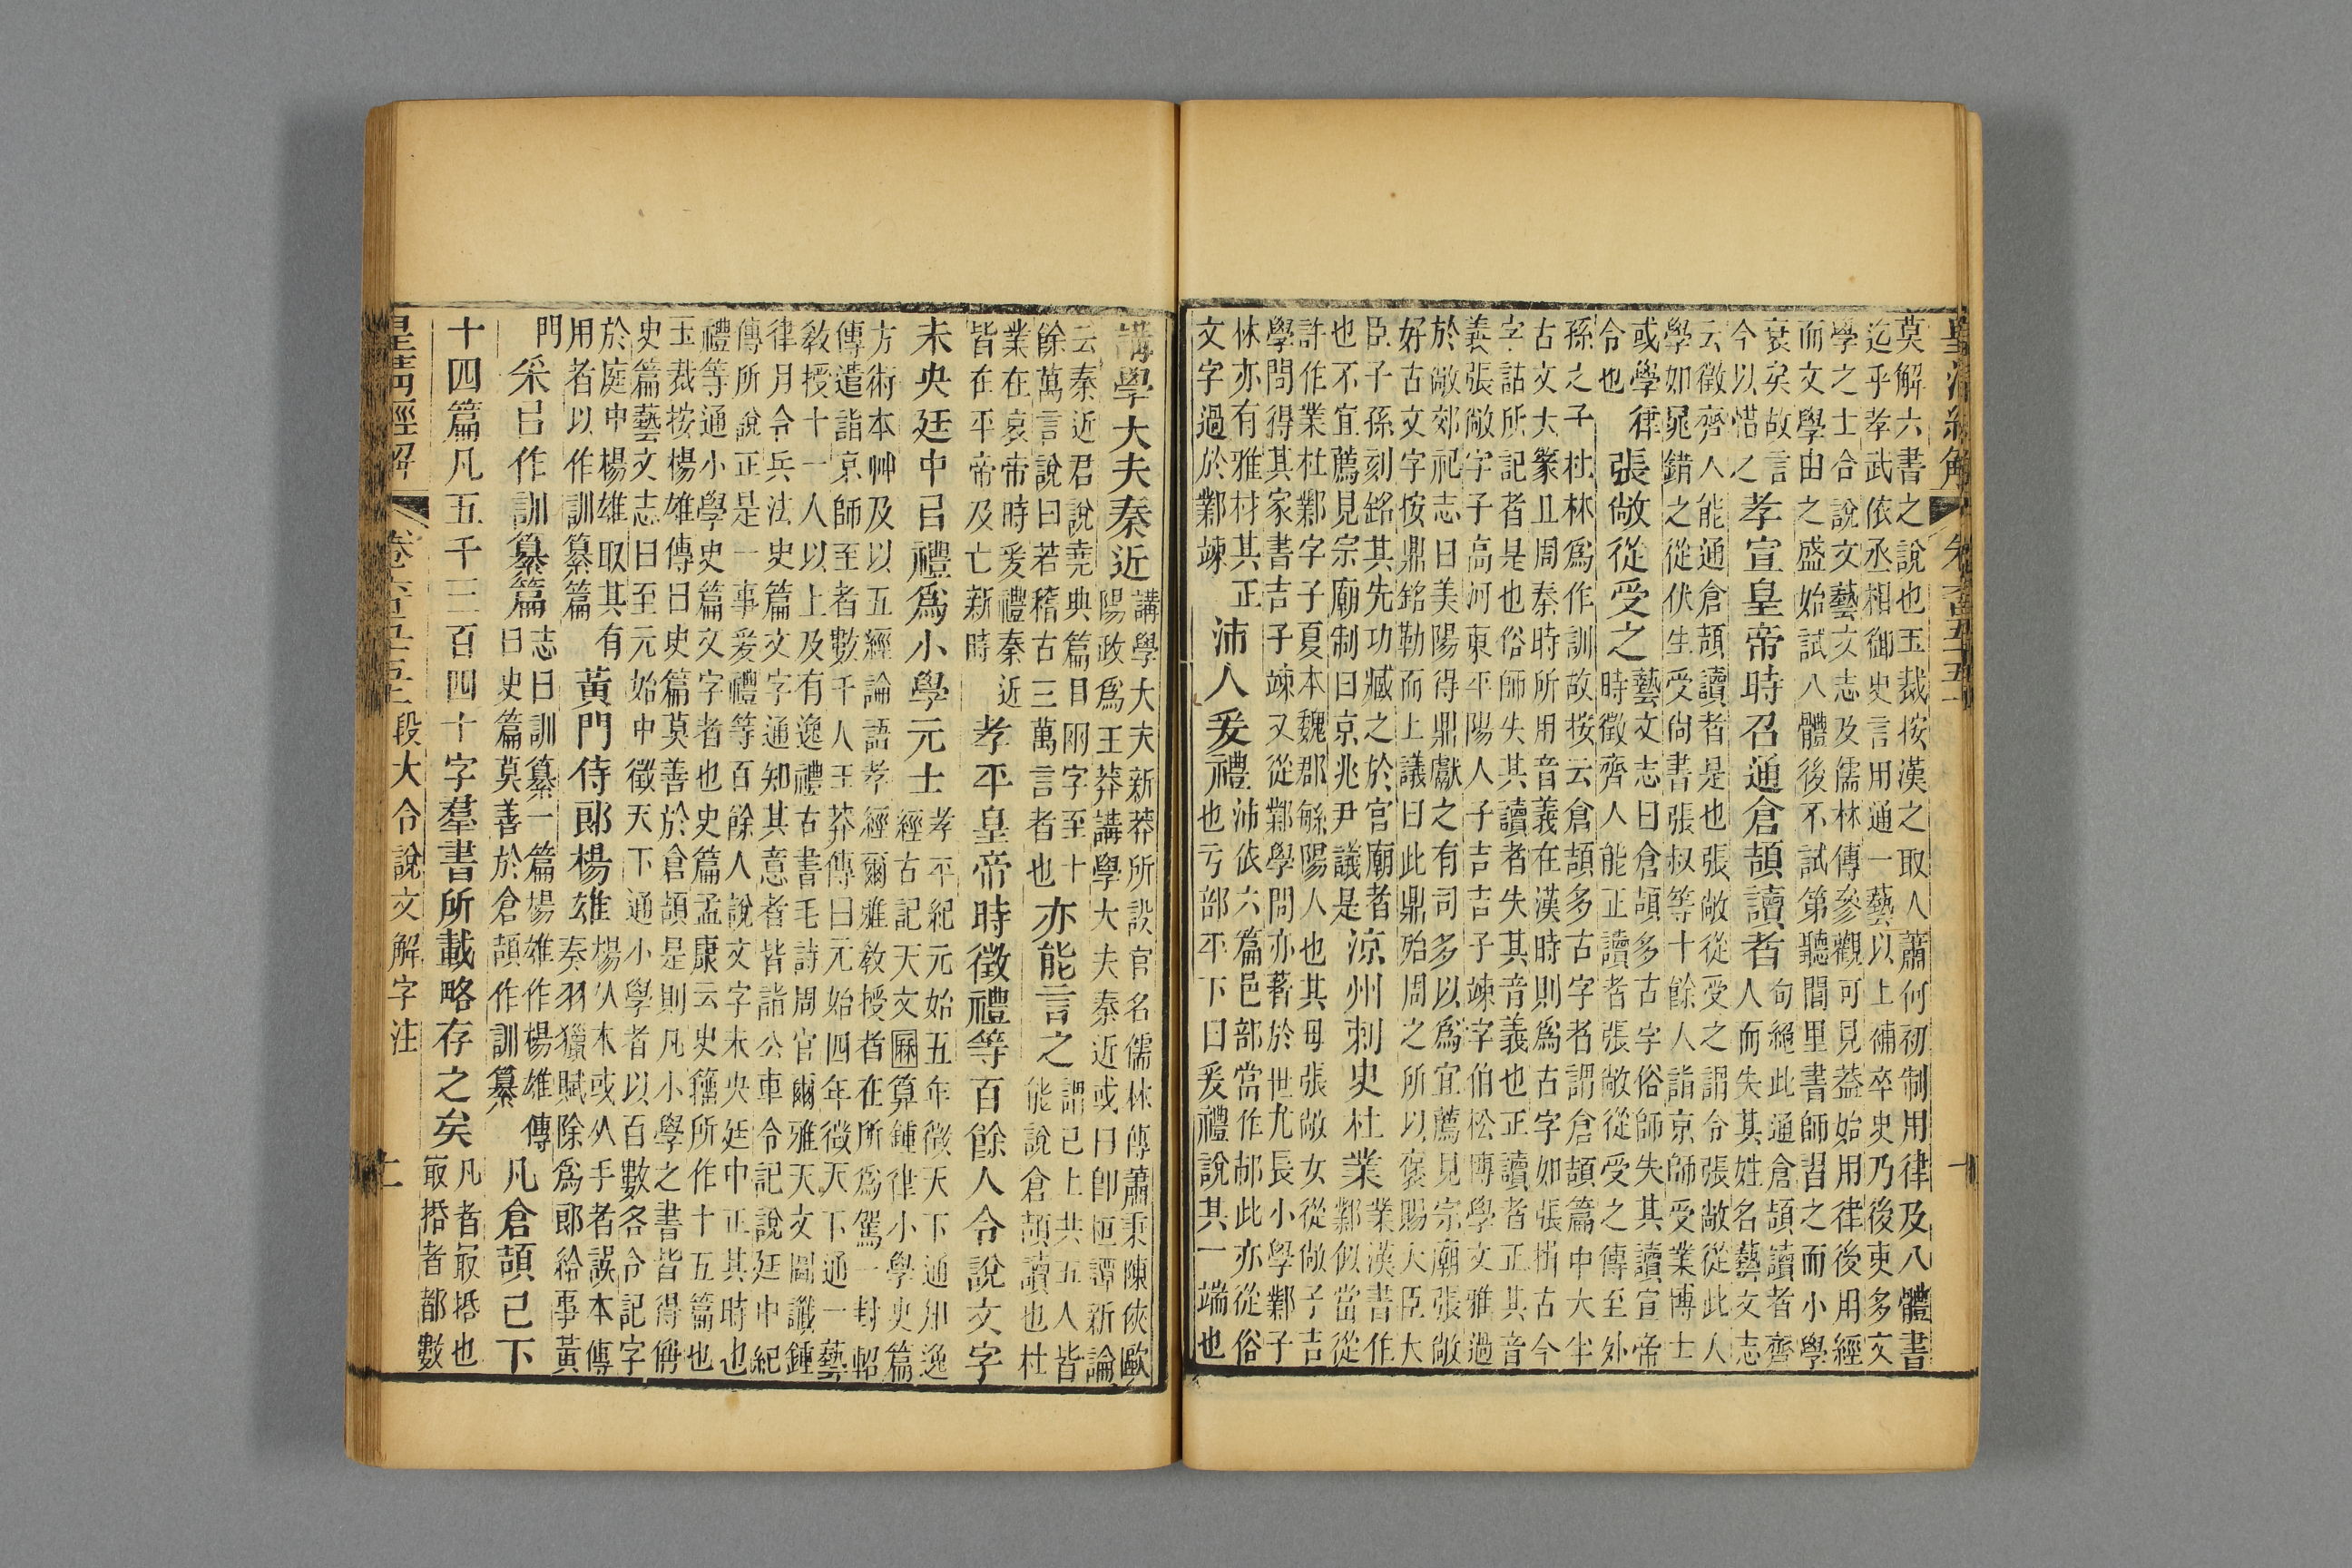 皇清經解 卷六百五十五 十
莫解六書之說也玉裁按漢之取人蕭何初制用律及八體書
迄乎孝武依丞相御史言用通一藝以上補卒史乃後吏多文
學之士合說文藝文志及儒林傳參觀可見葢始用律後用經
而文學由之盛始試八體後不試第聽閭里書師習之而小學
衰矣故言今以惜之孝宣皇帝時召通倉頡讀者句絕此通倉頡讀者齊人而失其姓名藝文志
云徵齊人能通倉頡讀者是也張敞從受之謂令張敞從此人
學如鼂錯之從伏生受尙書張叔等十餘人詣京師受業博士
或學律令也張敞從受之藝文志曰倉頡多古字俗師失其讀宣帝時徵齊人能正讀者張敞從受之傳至外
孫之子杜林爲作訓故按云倉頡多古字者謂倉頡篇中大半
古文大篆且周秦時所用音義在漢時則爲古字如張揖古今
字詁所記者是也俗師失其讀者失其音義也正讀者正其音
義張敞字子高河東平陽人子吉吉子竦字伯松博學文雅過
於敞郊祀志曰美陽得鼎獻之有司多以爲宜薦見宗廟張敞
好古文字按鼎銘勒而上議曰此鼎殆周之所以褒賜大臣大
臣子孫刻銘其先功臧之於官廟者也不宜薦見宗廟制曰京兆尹議是涼州刺史杜業業漢書作鄴似當從
許作業杜鄴字子夏本魏郡繇陽人也其母張敞女從敞子吉
學問得其家書吉子竦又從鄴學問亦著於世尤長小學鄴子
林亦有雅材其正文字過於鄴竦沛人爰禮沛依六篇邑部當作邟此亦從俗也丂部平下曰爰禮說其一端也
講學大夫秦近講學大夫新莽所設官名儒林傳蕭秉陳俠歐陽政爲王莽講學大夫秦近或曰卽桓譚新論
云秦近君說堯典篇目兩字至十餘萬言說曰若稽古三萬言者也亦能言之謂已上共五人皆能說倉頡讀也杜
業在哀帝時爰禮秦近皆在平帝及亡新時孝平皇帝時徵禮等百餘人令說文字
未央廷中㠯禮爲小學元士孝平紀元始五年徵天下通知逸經古記天文厤算鍾律小學史篇
方術本艸及以五經論語孝經爾雅敎授者在所爲駕一封軺
傳遣詣京師至者數千人王莽傳曰元始四年徵天下通一藝
敎授十一人以上及有逸禮古書毛詩周官爾雅天文圖讖鍾
律月令兵法史篇文字通知其意者皆詣公車令記說廷中紀
傳所說正是一事爰禮等百餘人說文字未央廷中正其時也
禮等通小學史篇文字者也史篇孟康云史籒所作十五篇也
玉裁按楊雄傳曰史篇莫善於倉頡是則凡小學之書皆得偁
史篇藝文志曰至元始中徵天下通小學者以百數各令記字
於庭中楊雄取其有用者以作訓纂篇黃門侍郞楊雄楊从木或从手者誤本傳奏羽獵賦除爲郞給事黃
門采㠯作訓纂篇志曰訓纂一篇楊雄作楊雄傳曰史篇莫善於倉頡作訓纂凡倉頡已下
十四篇凡五千三百四十字羣書所載略存之矣凡者冣括也冣括者都數
皇清經解 卷六百五十五 段大令說文解字注